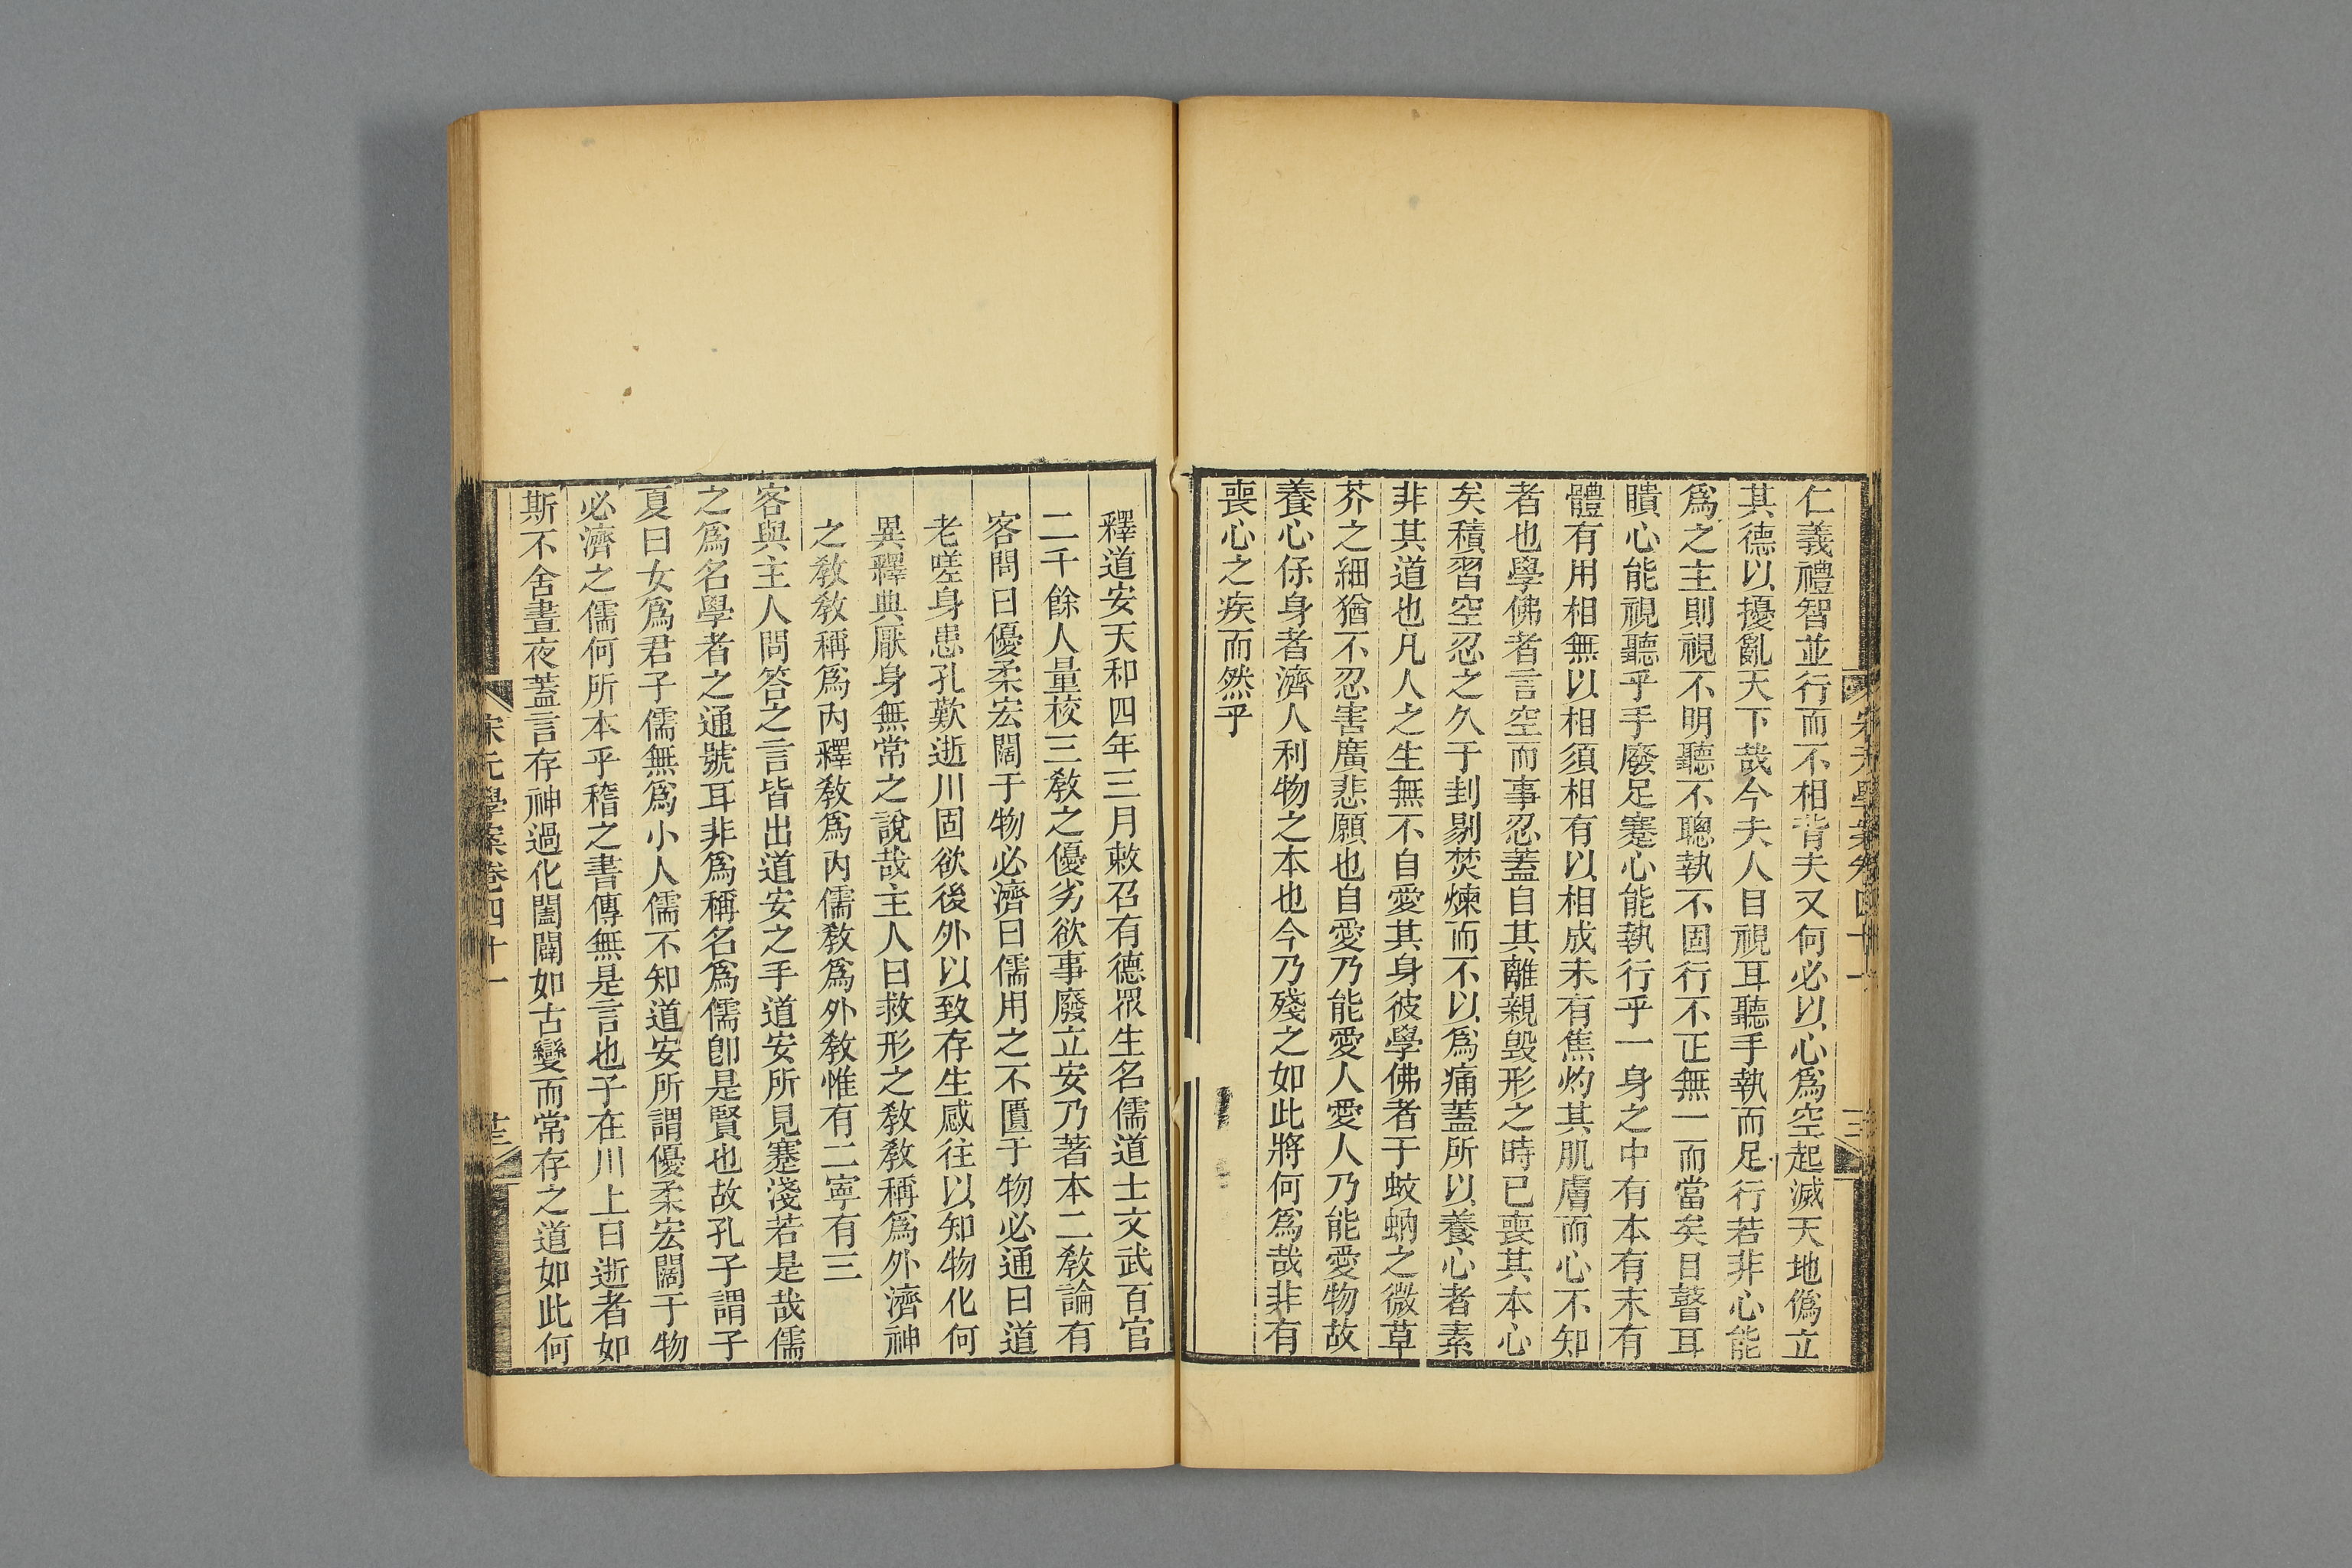 宋元學案卷四十一
仁義禮智並行而不相背夫又何必以心爲空起滅天地僞立
其德以擾亂天下哉今夫人目視耳聽手執而足行若非心能
爲之主則視不明聽不聰執不固行不正無一而當矣目瞽耳
聵心能視聽乎手廢足蹇心能執行乎一身之中有本有末有
體有用相無以相須相有以相成未有焦灼其肌膚而心不知
者也學佛者言空而事忍蓋自其離親毀形之時已喪其本心
矣積習空忍之久于刲剔焚煉而不以爲痛蓋所以養心者素
非其道也凡人之生無不自愛其身彼學佛者于蚊蚋之微草
芥之細猶不忍害廣悲願也自愛乃能愛人愛人乃能愛物故
養心保身者濟人利物之本也今乃殘之如此將何爲哉非有
喪心之疾而然乎
釋道安天和四年三月敕召有德眾生名儒道士文武百官
二千餘人量校三敎之優劣欲事廢立安乃著本二敎論有
客問曰優柔宏闊于物必濟曰儒用之不匱于物必通曰道
老嗟身患孔歎逝川固欲後外以致存生感往以知物化何
異釋典厭身無常之說哉主人曰救形之敎敎稱爲外濟神
之敎敎稱爲內釋敎爲內儒敎爲外敎惟有二寧有三
客與主人問答之言皆出道安之手道安所見蹇淺若是哉儒
之爲名學者之通號耳非爲稱名爲儒卽是賢也故孔子謂子
夏曰女爲君子儒無爲小人儒不知道安所謂優柔宏闊于物
必濟之儒何所本乎稽之書傳無是言也子在川上曰逝者如
斯不舍晝夜蓋言存神過化闔闢如古變而常存之道如此何
宋元學案卷四十一